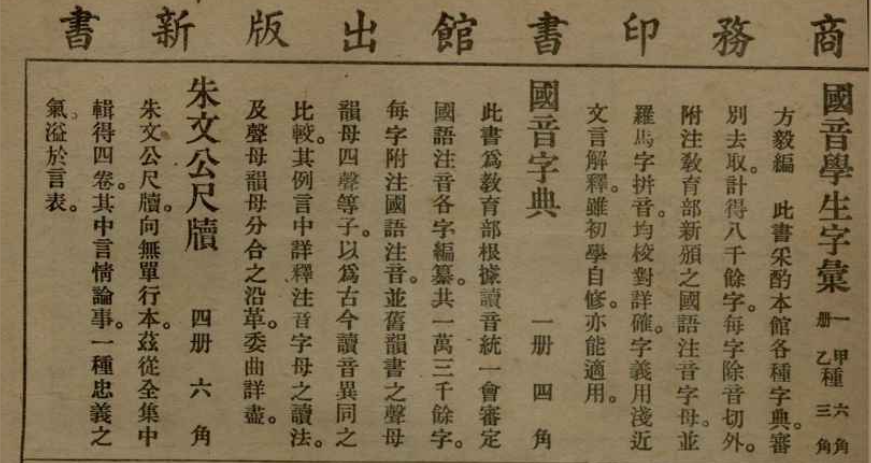 商務印書館出版新書
國音學生字彙 一册 甲種六角 乙種三角
方毅編 此書采酌本館各種字典。審
別去取。計得八千餘字。每字除音切外。
附注敎育部新頒之國語注音字母。並
羅馬字拼音。均校對詳確。字義用淺近
文言解釋。雖初學自修。亦能適用。
國音字典 一册 四角
此書爲敎育部根據讀音統一會審定
國語注音各字編纂。共一萬三千餘字。
每字附注國語注音。並舊韻書之聲母
韻母四聲等子。以爲古今讀音異同之
比較。其例言中詳釋注音字母之讀法。
及聲母韻母分合之沿革。委曲詳盡。
朱文公尺牘 四册 六角
朱文公尺牘。向無單行本。茲從全集中
輯得四卷。其中言情論事。一種忠義之
氣。溢於言表。